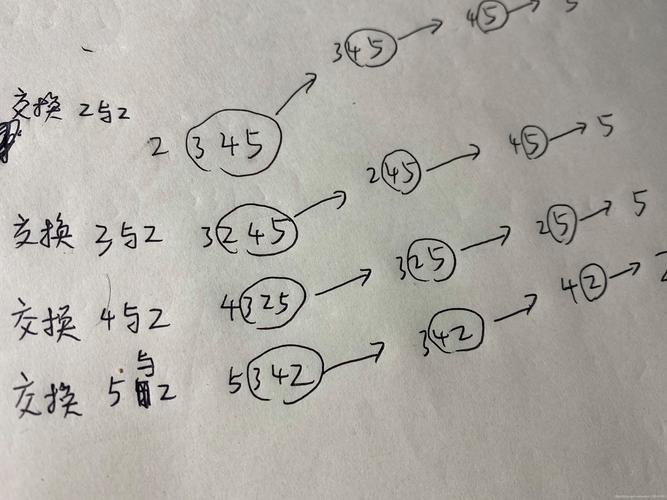 交换 2与2 2 345 → 345 → 45 → 5
交换 3与2 3245 → 245 → 45 → 5
交换 4与2 4325 → 325 → 25 → 5
交换 5与2 5342 → 342 → 42 → 2